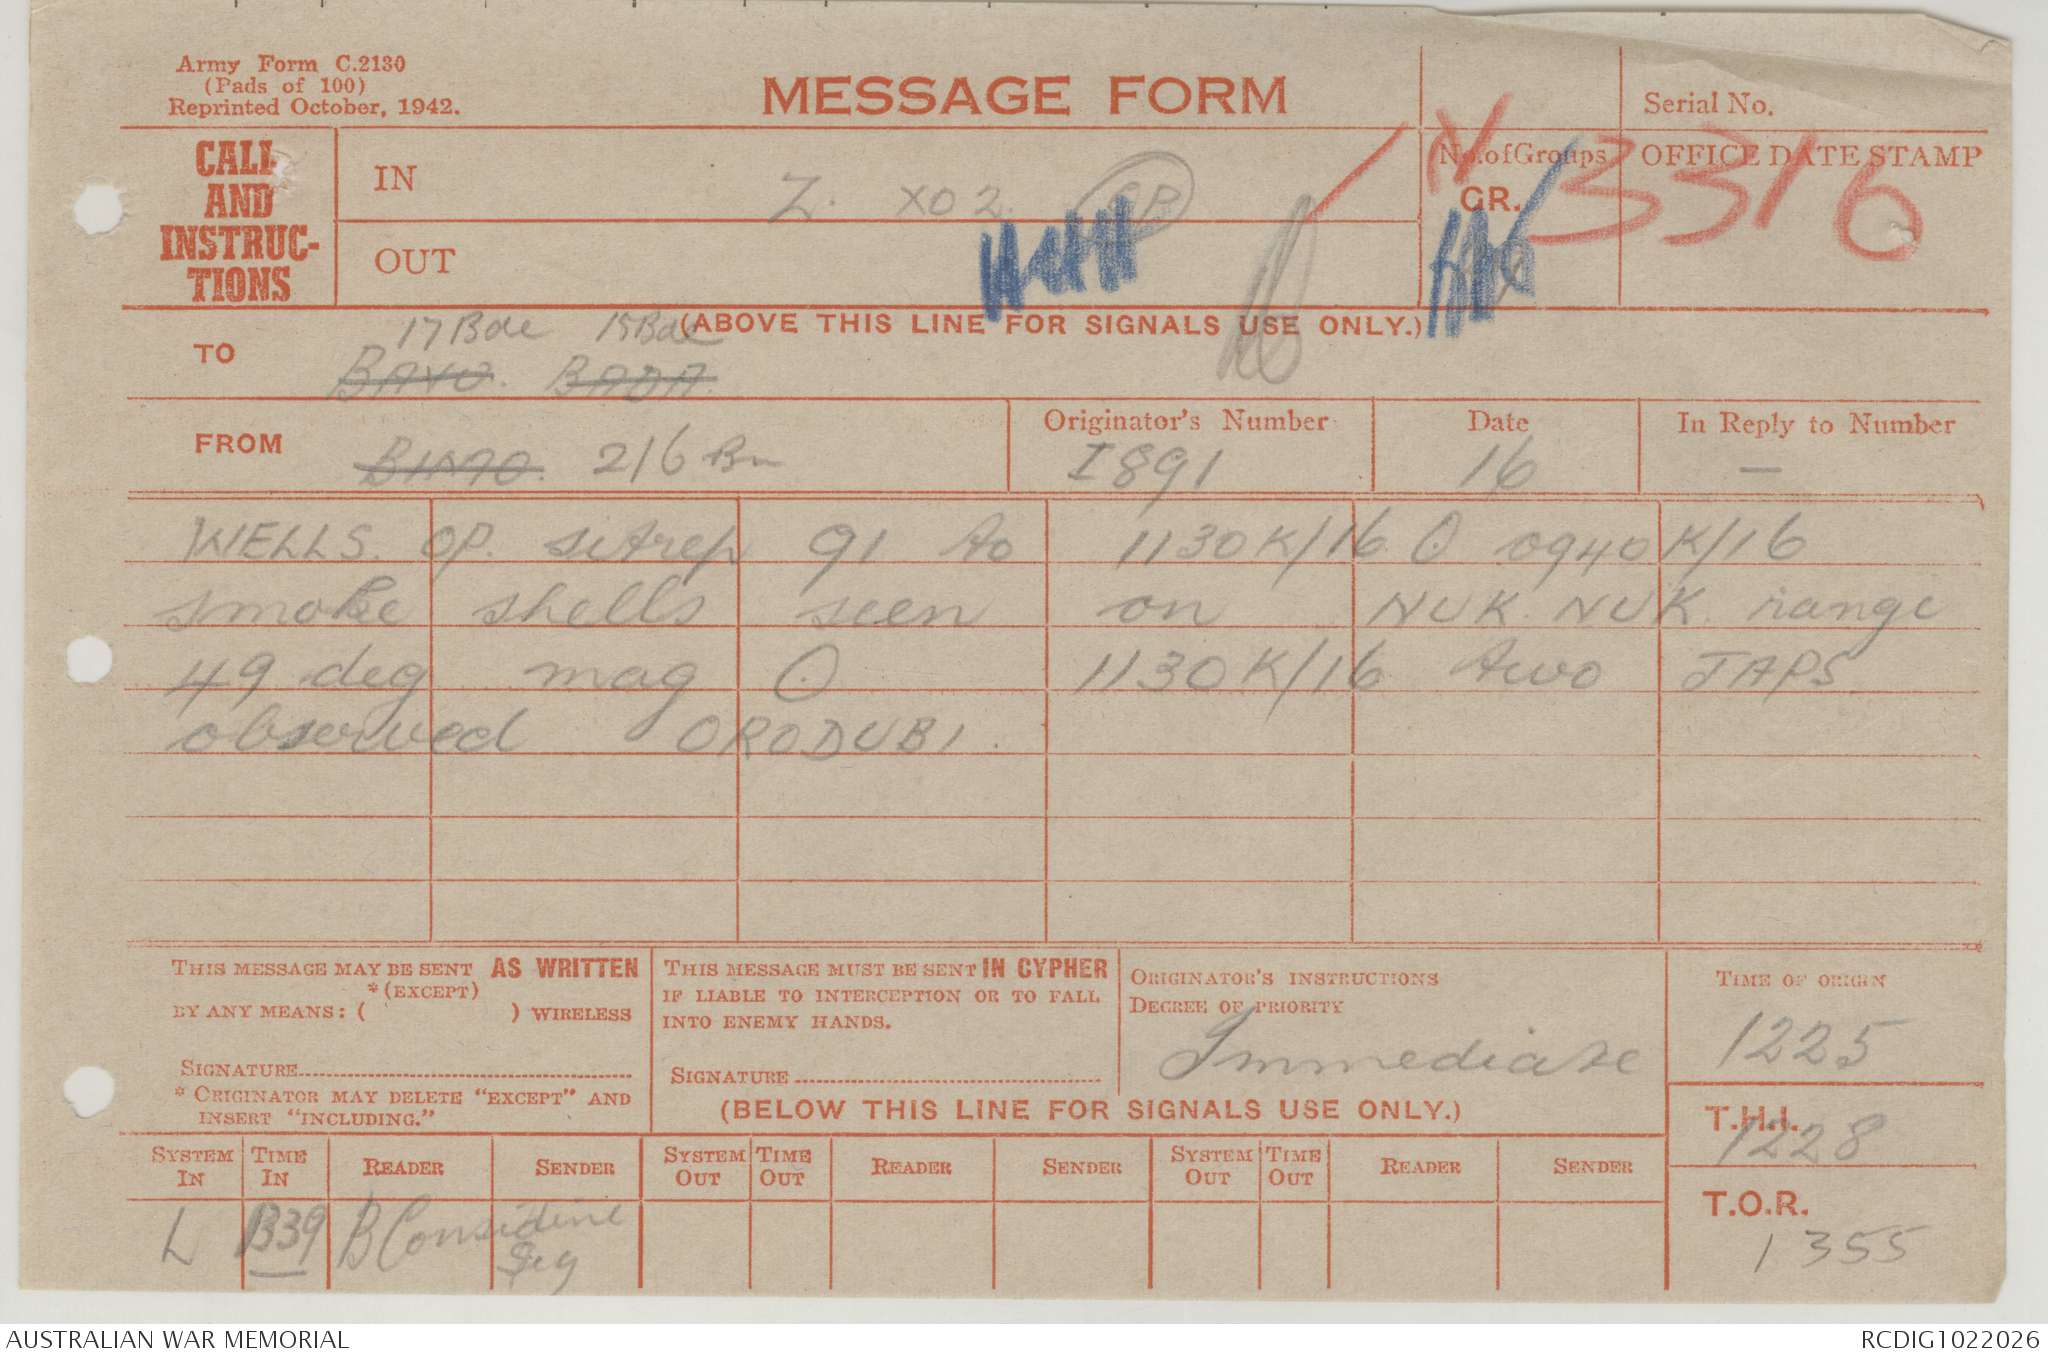 Army Form C.2130
(Pads of 100)
Reprinted October, 1942.
MESSAGE FORM
Serial No.
CALL AND INSTRUC-TIONS
IN
Z. XO2.
No. of Groups
GR.
OFFICE DATE STAMP
N 3316
OUT
(ABOVE THIS LINE FOR SIGNALS USE ONLY.)
TO
17 Bde 15 Bde
FROM
2/6 Bn
Originator's Number
I891
Date
16
In Reply to Number
—
WELLS. OP. sitrep 91 to 1130K/16 O 0940K/16
smoke shells seen on NUK. NUK. range
49 deg mag O 1130K/16 two JAPS
observed ORODUBI.
THIS MESSAGE MAY BE SENT AS WRITTEN
*(EXCEPT)
BY ANY MEANS: ( ) WIRELESS
SIGNATURE
* ORIGINATOR MAY DELETE "EXCEPT" AND
INSERT "INCLUDING."
THIS MESSAGE MUST BE SENT IN CYPHER
IF LIABLE TO INTERCEPTION OR TO FALL
INTO ENEMY HANDS.
SIGNATURE
ORIGINATOR'S INSTRUCTIONS
DEGREE OF PRIORITY
Immediate
TIME OF ORIGIN
1225
(BELOW THIS LINE FOR SIGNALS USE ONLY.)
T.H.I.
1228
SYSTEM IN
TIME IN
READER
SENDER
SYSTEM OUT
TIME OUT
READER
SENDER
SYSTEM OUT
TIME OUT
READER
SENDER
T.O.R.
1355
L B39 B Considine
Sig
AUSTRALIAN WAR MEMORIAL
RCDIG1022026